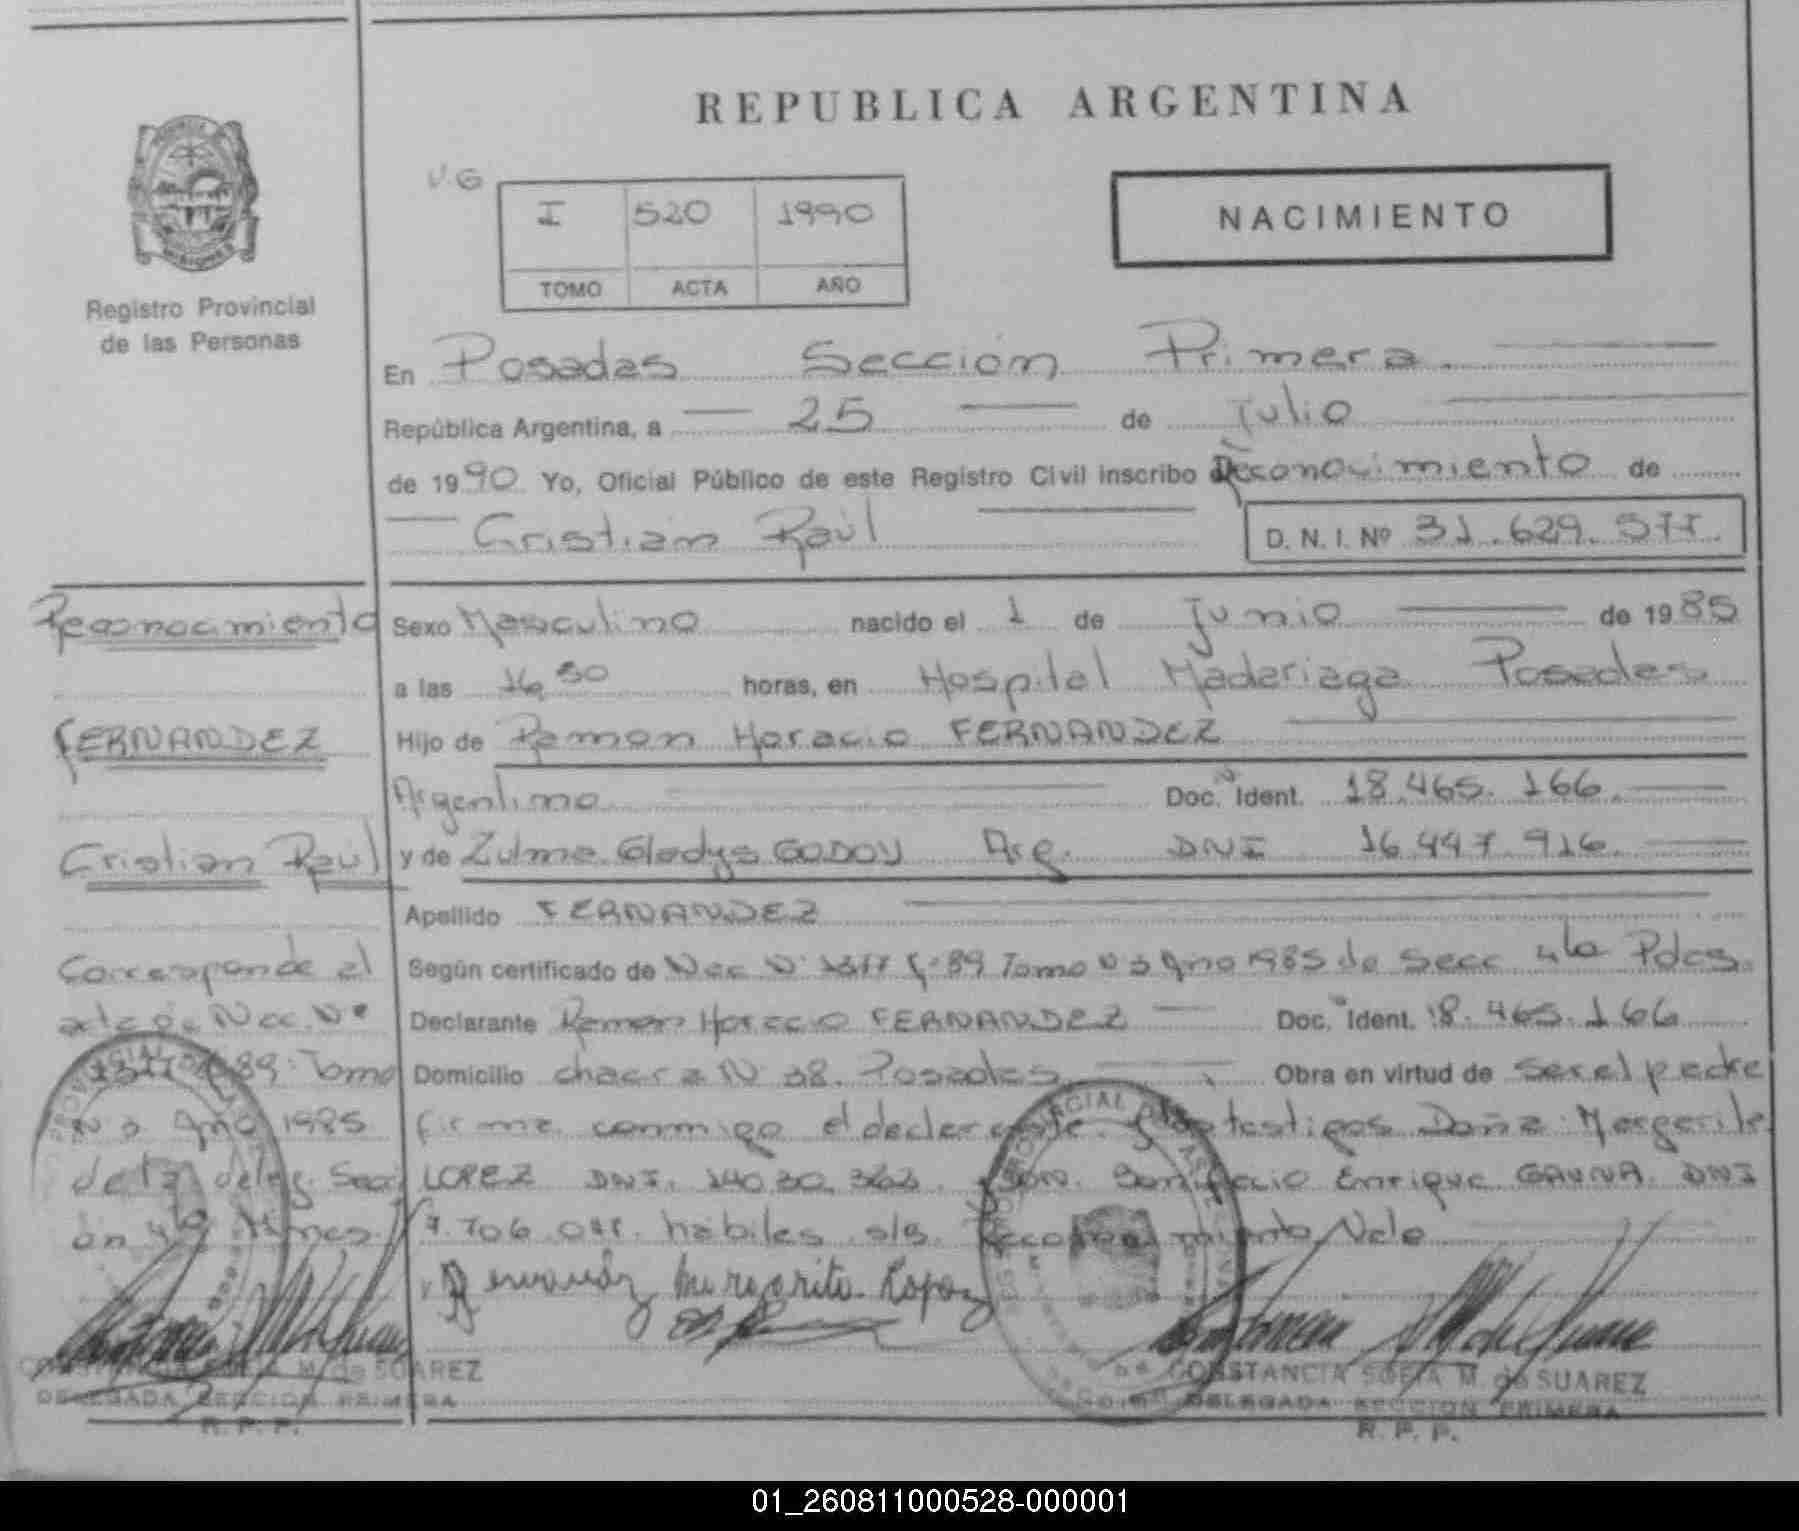 REPUBLICA ARGENTINA
V.G
I 520 1990
TOMO ACTA AÑO
NACIMIENTO
Registro Provincial
de las Personas
En Posadas Sección Primera
República Argentina, a 25 de Julio
de 1990 Yo, Oficial Público de este Registro Civil inscribo Reconocimiento de
Cristian Raúl D. N. I. Nº 31.629.577.
Sexo Masculino nacido el 1 de Junio de 1985
a las horas, en Hospital Madariaga Posadas
Hijo de Ramon Horacio FERNANDEZ
Argentino Doc. Ident. 18.465.166.
y de Zulma Gladys GODOY Arg. DNI 16.447.916.
Apellido FERNANDEZ
Según certificado de Nac Nº 1377 Fº 89 Tomo Nº 3 Año 1985 de Secc 4ta Pdas.
Declarante Ramon Horacio FERNANDEZ Doc. Ident. 18.465.166
Domicilio chacra Nº 38. Posadas Obra en virtud de ser el padre
firma conmigo el declarante testigos Doña Margarita
LOPEZ DNI. Enrique GAUNA. DNI
7.706. habiles Vale
Margarita Lopez
CONSTANCIA SOFIA M. de SUAREZ
DELEGADA SECCION PRIMERA
R. P. P.
Reconocimiento
FERNANDEZ
Cristian Raúl
Corresponde al
acta de Nac. Nº
89 Tomo
Nº 3 Año 1985
de la deleg. Secci
ón 4ta
M. de SUAREZ
DELEGADA SECCION PRIMERA
R. P. P.
01_260811000528-000001